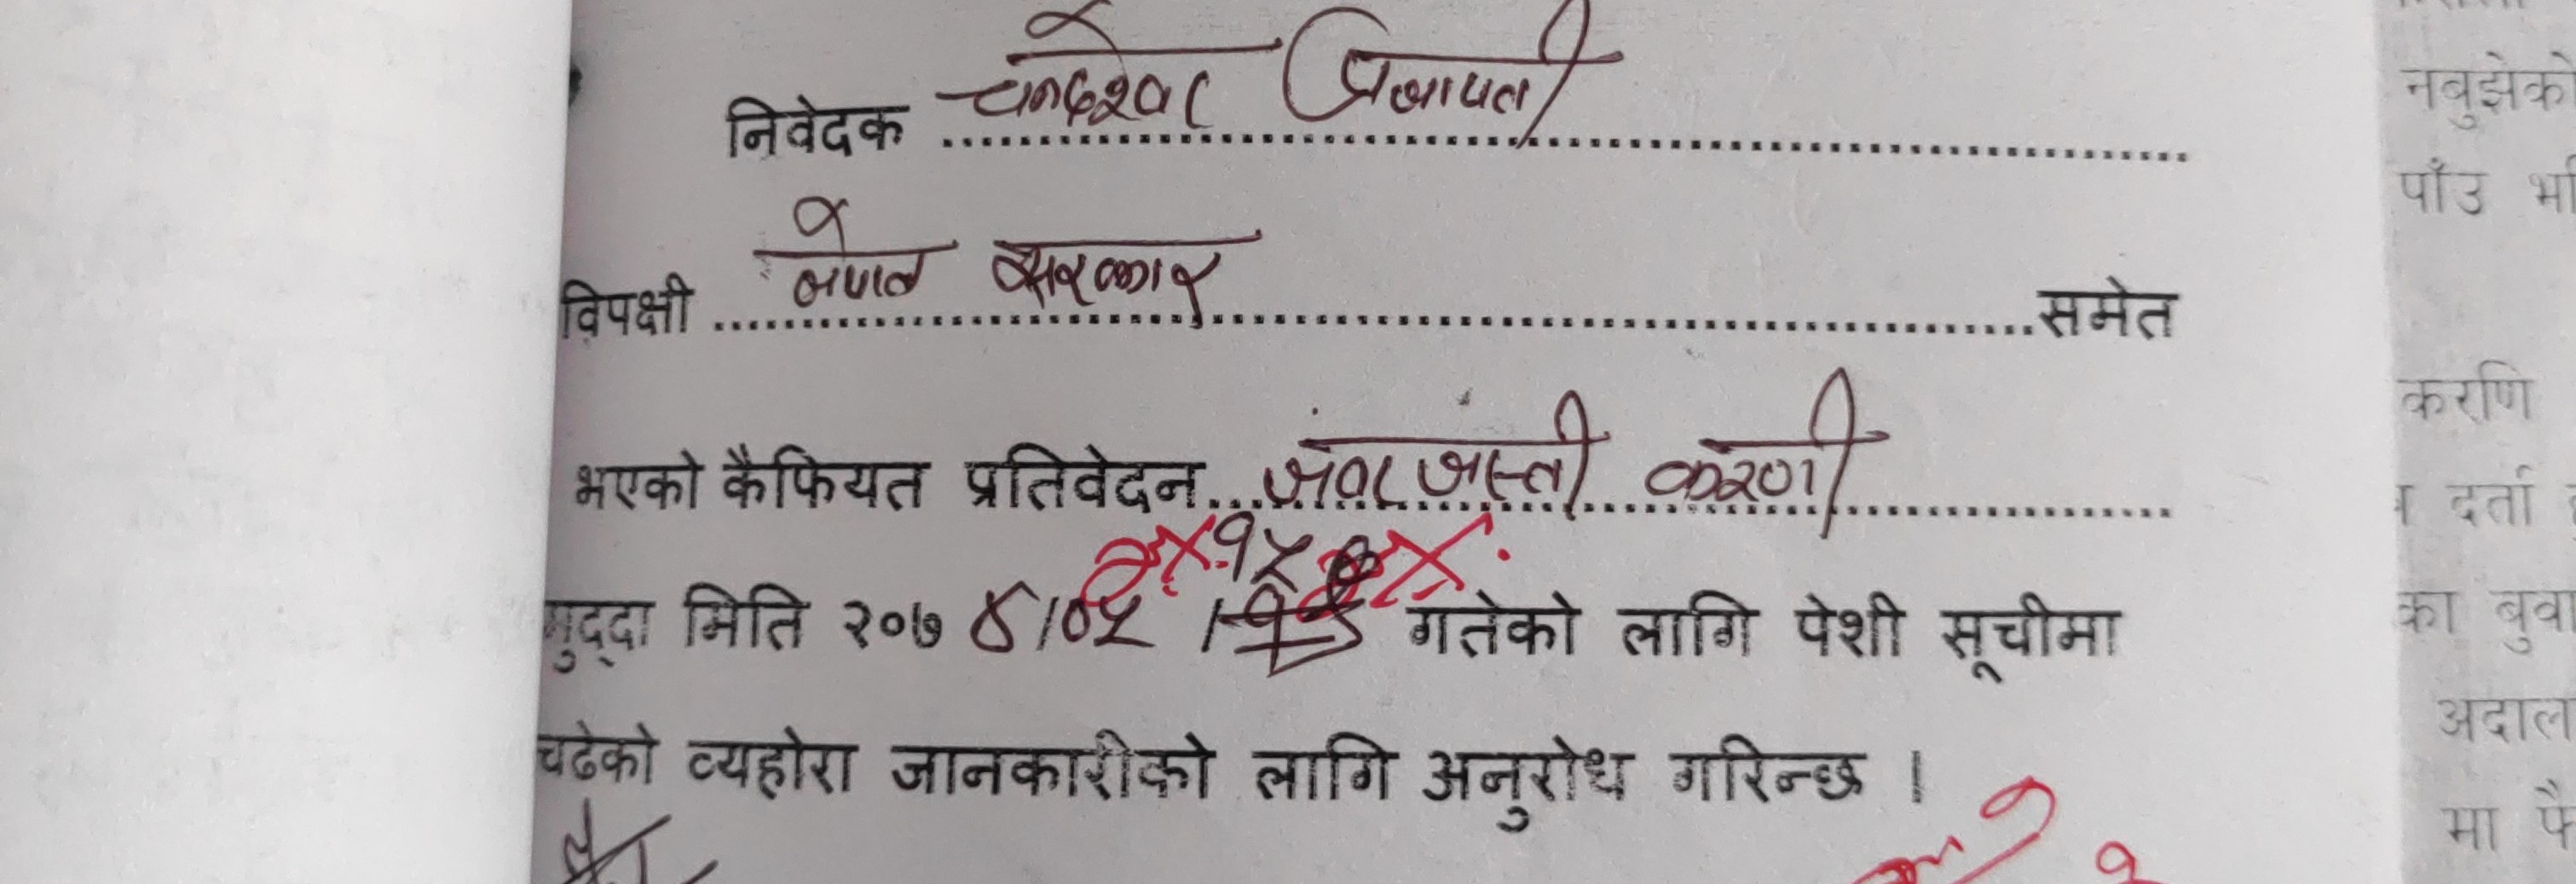 निवेदक चन्देश्वर प्रजापती
विपक्षी नेपाल सरकार समेत
भएको कैफियत प्रतिवेदन जवरजस्ती करणी
मुद्दा मिति २०७ ४/०५ / गतेको लागि पेशी सूचीमा
चढेको व्यहोरा जानकारीको लागि अनुरोध गरिन्छ ।
नबुझेको
पाँउ
करणि
दर्ता
का बुवा
अदाल
मा